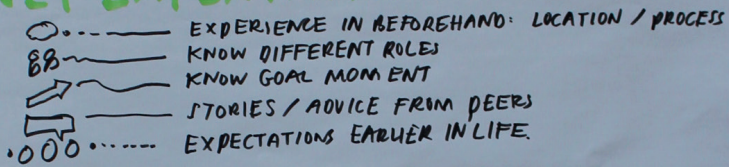 EXPERIENCE IN BEFOREHAND: LOCATION / PROCESS
KNOW DIFFERENT ROLES
KNOW GOAL MOMENT
STORIES / ADVICE FROM PEERS
EXPECTATIONS EARLIER IN LIFE.